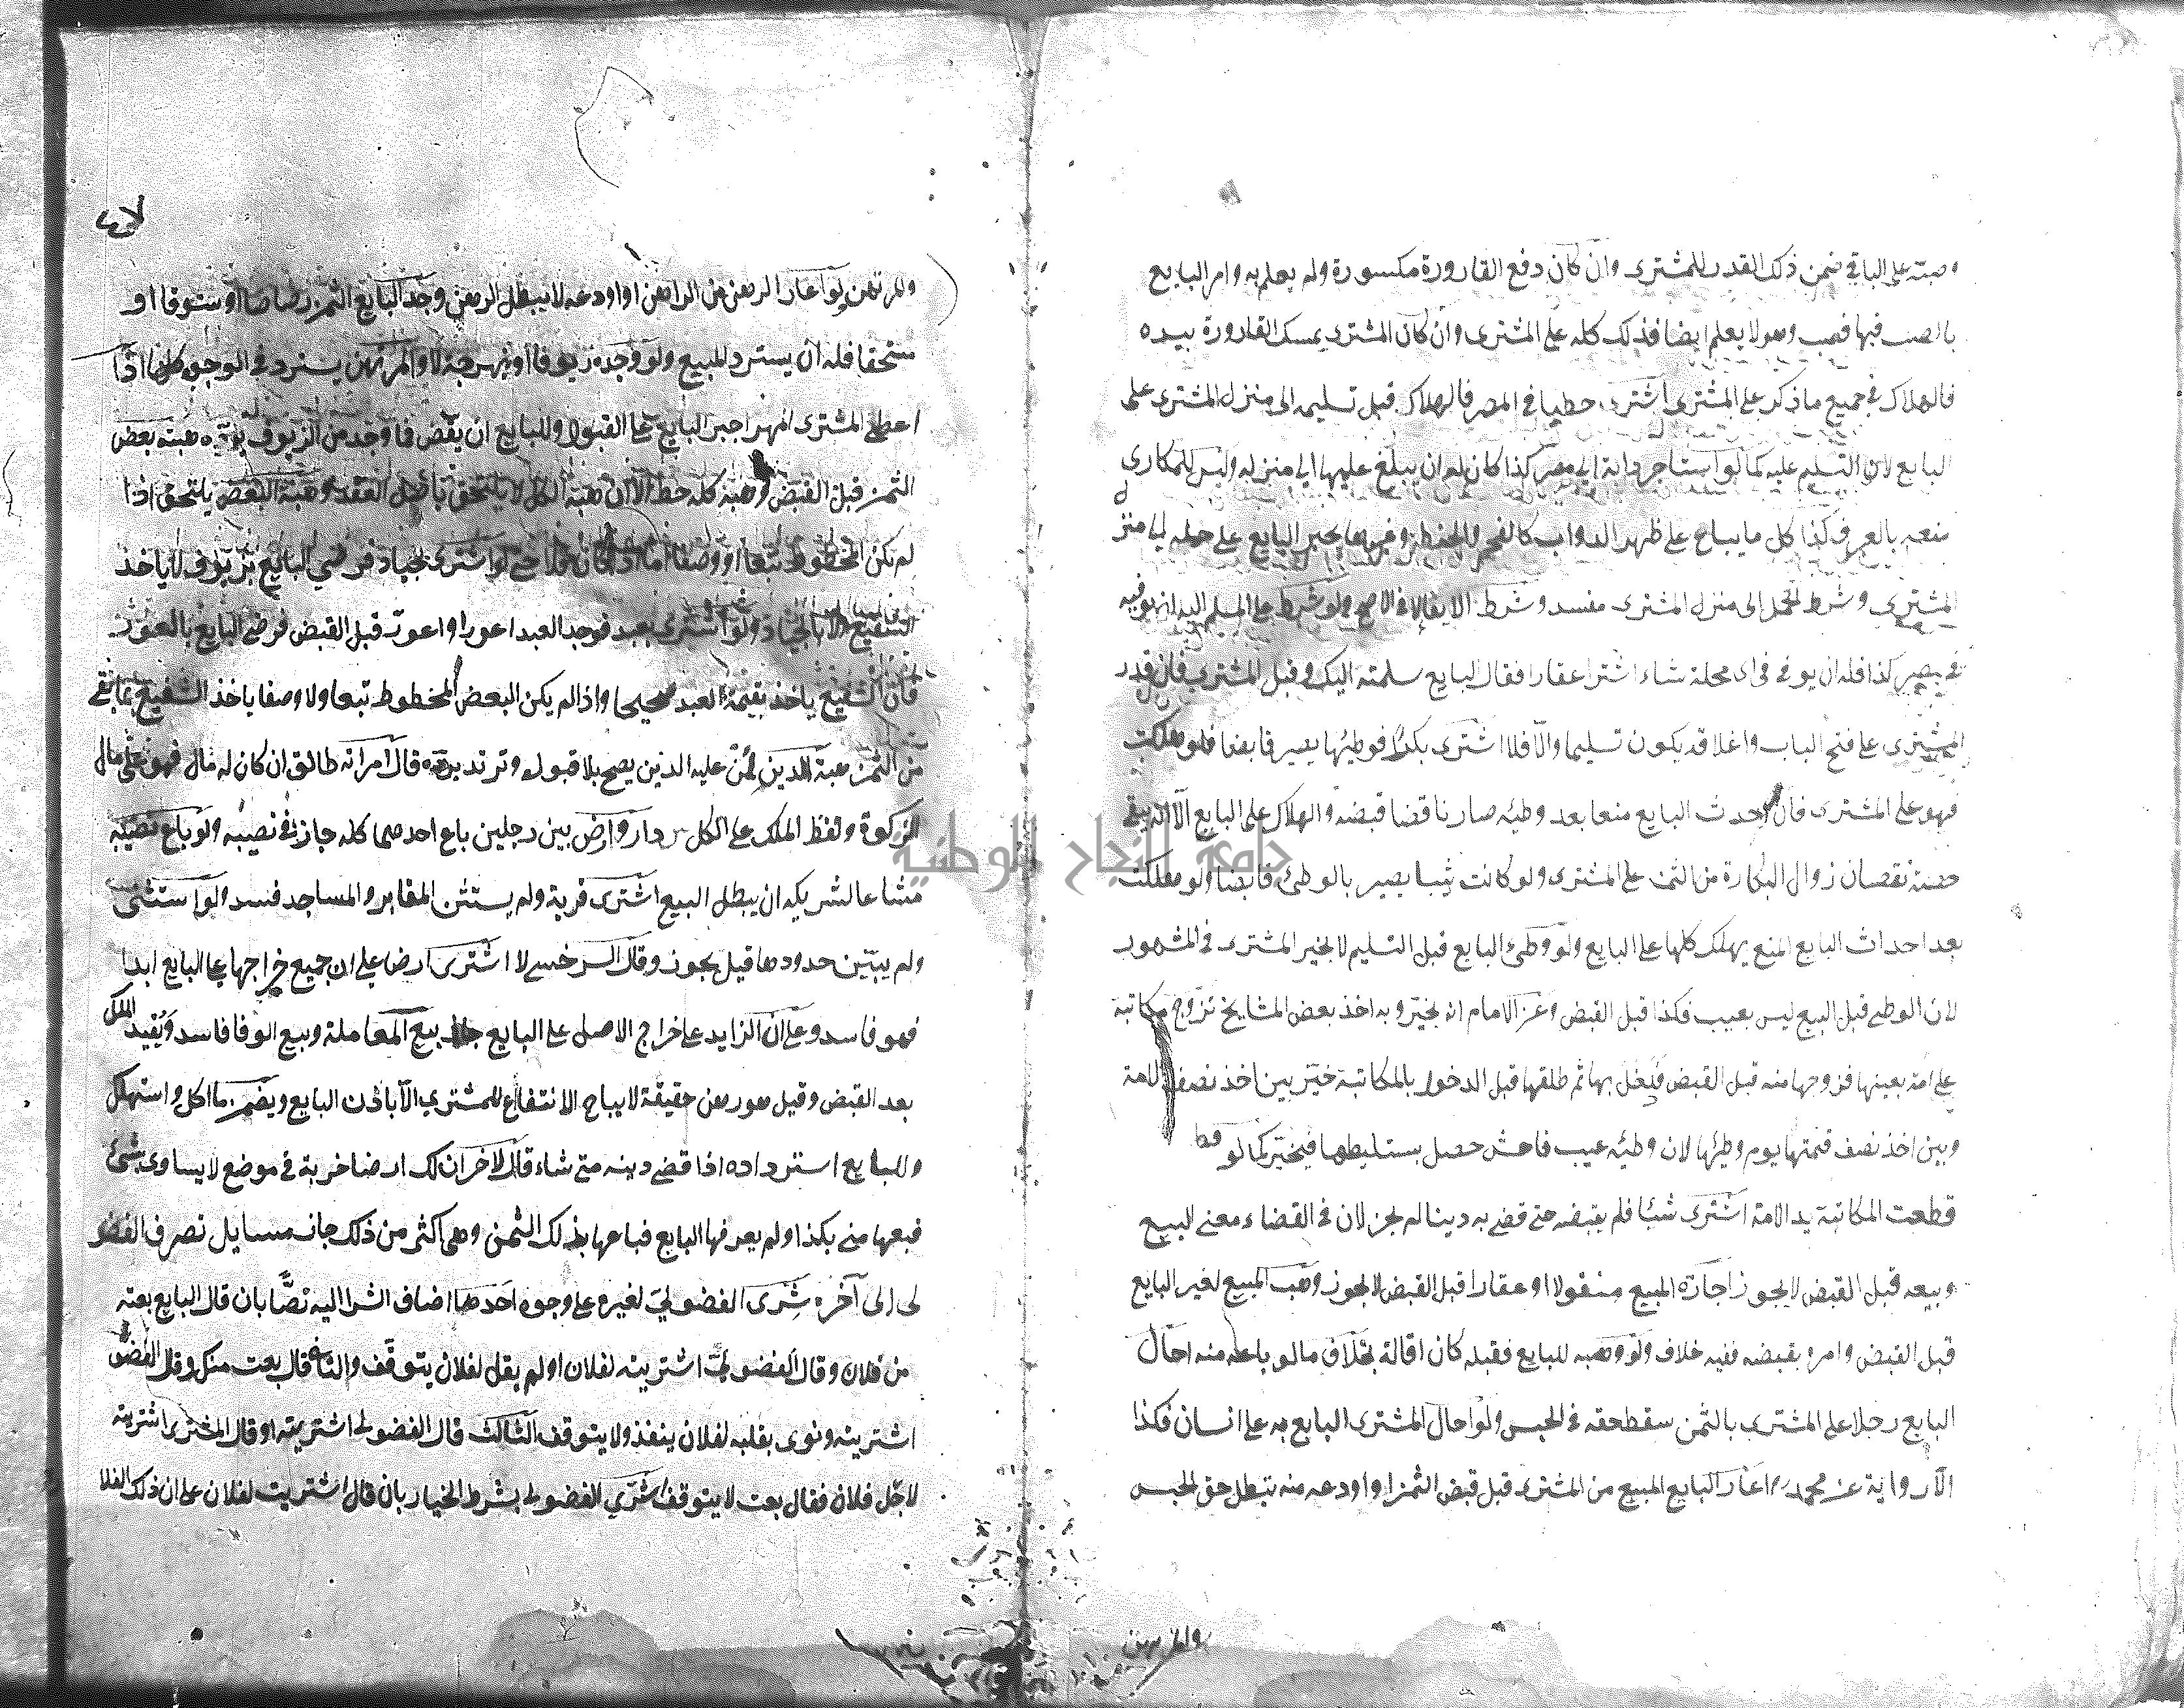 وصبته على الباقي ضمن ذلك القدر للمشترى وان كان دفع القارورة مكسورة ولم يعلم به وامر البايع
بالصب فيها فصب وهو لا يعلم ايضا فذلك كله على المشترى وان كان المشترى يمسك القارورة بيده
فالهلاك في جميع ما ذكر على المشترى اشترى حطبا في المصر فالهلاك قبل تسليمه الى منزل المشترى على
البايع لان التسليم عليه كما لو استاجر دابة الى مصر كذا كان له ان يبلغ عليها الى منزله وليس للمكارى
منعه بالعرف كذا كل ما يباع على ظهر الدواب كالفحم والحنطة وغيرها يجبر البايع على حمله الى منزل
المشترى وشرط الحمل الى منزل المشترى مفسد وشرط الايفاء لا في الاصح ولو شرط على المسلم اليه ان يوفيه
في مصر كذا فله ان يوفي في اى محلة شاء اشترا عقارا فقال البايع سلمته اليك وقبل المشترى فان قدر
المشترى على فتح الباب واغلاقه يكون تسليما والا فلا اشترى بكرا فوطئها يصير قابضا فلو هلكت
فهو على المشترى فان احدث البايع منعا بعد وطئه صار ناقضا قبضه والهلاك على البايع الا انه يبقى
حصة نقصان زوال البكارة من الثمن على المشترى ولو كانت ثيبا يصير بالوطئ قابضا ولو هلكت
بعد احداث البايع المنع يهلك كلها على البايع ولو وطئ البايع قبل التسليم لا يخير المشترى في المشهور
لان الوطى قبل البيع ليس بعيب فكذا قبل القبض وعن الامام انه يخير وبه اخذ بعض المشايخ تزوج مكاتبة
على امة بعينها فزوجها منه قبل القبض فدخل بها ثم طلقها قبل الدخول بالمكاتبة خير بين اخذ نصف الامة
وبين اخذ نصف قيمتها يوم وطئها لان وطئه عيب فاحش حصل بتسليطها فيخير كما لو
قطعت المكاتبة يد الامة اشترى شيئا فلم يقبضه حتى قضى به دينا لم يجز لان في القضاء معنى البيع
وبيعه قبل القبض لا يجوز اجارة المبيع منقولا او عقارا قبل القبض لا يجوز وهب المبيع لغير البايع
قبل القبض وامره بقبضه ففيه خلاف ولو وهبه للبايع فقبله كان اقالة بخلاف ما لو باعه منه احال
البايع رجلا على المشترى بالثمن سقط حقه في الحبس ولو احال المشترى البايع به على انسان فكذا
الا رواية عن محمد اعار البايع المبيع من المشترى قبل قبض الثمن او اودعه منه تبطل حق الحبس
والمرتهن
٤٧
والمرتهن لو اعار الرهن من الراهن او اودعه لا يبطل الرهن وجد البايع الثمن رصاصا او ستوقا او
مستحقا فله ان يسترد المبيع ولو وجده زيوفا او نبهرجة لا والمرتهن يسترد في الوجوه كلها اذا
اعطى المشترى المهر اجبر البايع على القبول وللبايع ان يقض ما وجد من الزيوف هبة بعض
الثمن قبل القبض وهبة كله حط الا ان هبة الكل لا يلتحق باصل العقد وهبة البعض يلتحق اذا
لم يكن المحطوط تبعا او وصفا اما اذا كان فلا حتى لو اشترى بجياد فرضي البايع بزيوف لا ياخذ
الشفيع الا بالجياد ولو اشترى بعبد فوجد العبد اعور او اعور قبل القبض فرضى البايع بالعور
فان الشفيع ياخذ بقيمة العبد صحيحا واذا لم يكن البعض المحطوط تبعا ولا وصفا ياخذ الشفيع بما بقى
من الثمن هبة الدين لمن عليه الدين يصح بلا قبول وترتد برده قال امراته طالق ان كان له مال فهو على مال
الزكوة ولفظ الملك على الكل دار وارض بين رجلين باع احدهما كله جاز في نصيبه ولو باع نصيبه
مشاعا لشريكه ان يبطل البيع اشترى قرية ولم يستثن المقابر والمساجد فسد ولو استثنى
ولم يبين حدودها قيل يجوز وقال السرخسى لا اشترى ارض على ان جميع خراجها على البايع ابدا
فهو فاسد وعلى ان الزايد على خراج الاصل على البايع جاز بيع المعاملة وبيع الوفا فاسد ويفيد الملك
بعد القبض وقيل هو رهن حقيقة لا يباح الانتفاع للمشترى الا باذن البايع ويضمن ما اكل واستهلك
وللبايع استرداده اذا قضى دينه متى شاء قال لاخر ان لك ارضا خربة في موضع لا يساوى بشئ
فبعها منى بكذا ولم يعرفها البايع فباعها بذلك الثمن وهى اكثر من ذلك جاز مسايل تصرف الفضو
لى الى آخره شرى الفضولي لغيره على وجوه احدها اضاف الشرا اليه نصا بان قال البايع بعته
من فلان وقال الفضولي اشتريته لفلان او لم يقل لفلان يتوقف والثاني قال بعت منك وقال الفضولى
اشتريته ونوى بقلبه لفلان ينفذ ولا يتوقف الثالث قال الفضولى اشتريته او قال المشترى اشتريته
لاجل فلان فقال بعت لا يتوقف اشترى الفضولى بشرط الخيار بان قال اشتريت لفلان على ان ذلك الفلا
جامعة النجاح الوطنية